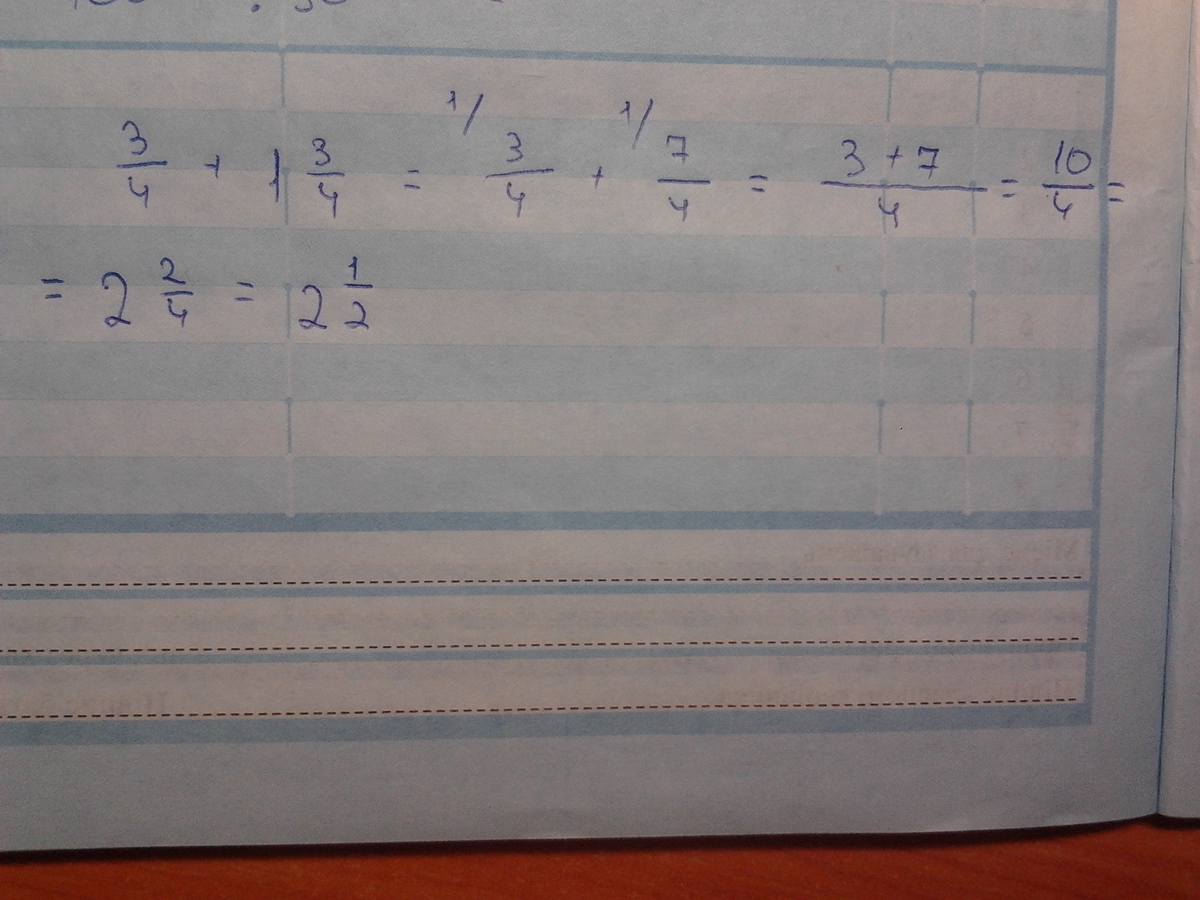 3/4 + 1 3/4 = 1/ 3/4 + 1/ 7/4 = 3+7/4 = 10/4 =
= 2 2/4 = 2 1/2